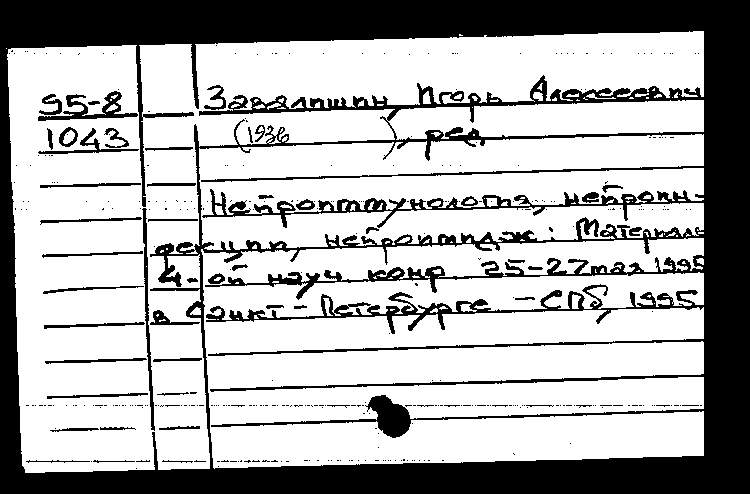 95-8 Завалишин, Игорь Алексеевич
1043 (1936 ), ред.
Нейроиммунология, нейроин-
фекции, нейроимидж: Материалы
4-ой науч. конф. 25-27 мая 1995
в Санкт-Петербурге -СПб, 1995.